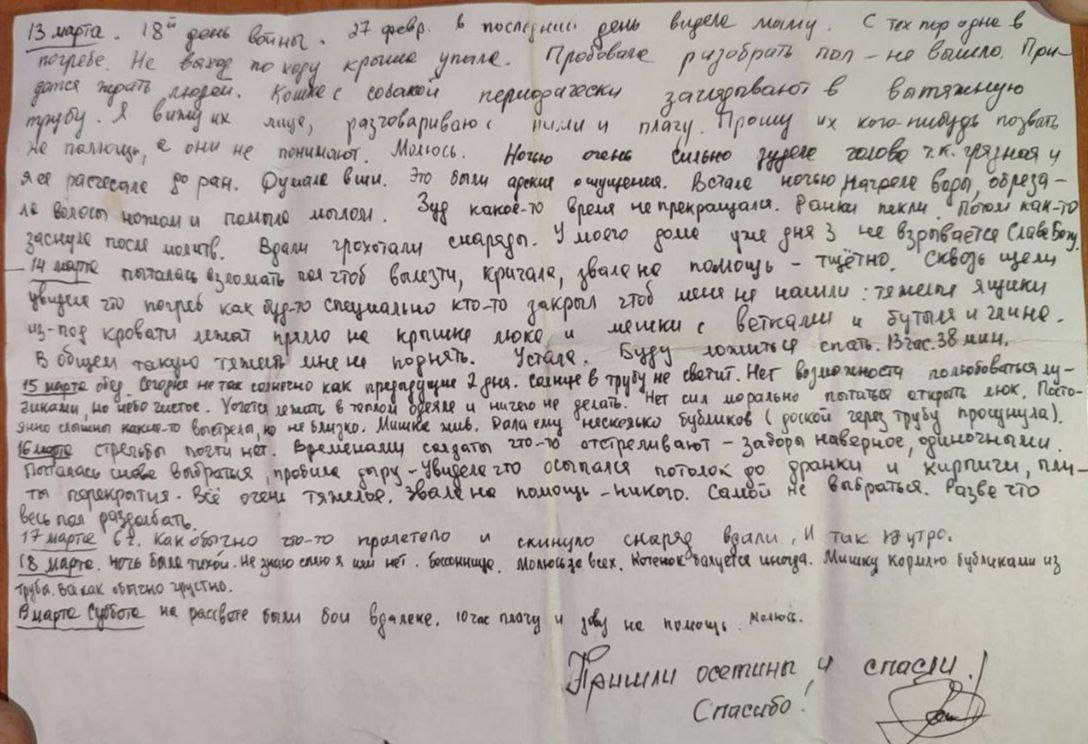 13 марта. 18й день войны. 27 февр. в последний день видела маму. С тех пор одна в
погребе. Не выход по ходу крыша упала. Пробовала разобрать пол – не вышло. При-
дётся ждать людей. Кошка с собакой периодически заглядывают в вытяжную
трубу. Я вижу их лица, разговариваю с ними и плачу. Прошу их кого-нибудь позвать
на помощь, а они не понимают. Молюсь. Ночью очень сильно зудела голова т.к. грязная и
я её расчесала до ран. Думала вши. Это были адские ощущения. Встала ночью, нагрела воды, обреза-
ла волосы ножом и помыла мылом. Зуд какое-то время не прекращался. Ранки пекли. Потом как-то
заснула после молитв. Вдали грохотали снаряды. У моего дома уже дня 3 не взрывается Слава Богу.
14 марта пыталась взломать пол чтоб вылезти, кричала, звала на помощь – тщётно. Сквозь щели
увидела что погреб как буд-то специально кто-то закрыл чтоб меня не нашли: тяжелые ящики
из-под кровати лежат прямо на крышке люка и мешки с ветками и бутыля и глина.
В общем такую тяжесть мне не поднять. Устала. Буду ложиться спать. 13 час. 38 мин.
15 марта обед. Сегодня не так солнечно как предыдущие 2 дня. Солнце в трубу не светит. Нет возможности полюбоваться лу-
чиками, но небо чистое. Хочется лежать в теплом одеяле и ничего не делать. Нет сил морально пытаться открыть люк. Посто-
янно слышны какие-то выстрелы, но не близко. Мишка жив. Дала ему несколько бубликов (доской через трубу просунула).
16 марта стрельбы почти нет. Временами солдаты что-то отстреливают – заборы наверное, одиночными.
Пыталась снова выбраться, пробила дыру – увидела что осыпался потолок до дранки и кирпичи, пли-
ты перекрытия. Всё очень тяжелое. Звала на помощь – никого. Самой не выбраться. Разве что
весь пол раздолбать.
17 марта 6 ч. Как обычно что-то пролетело и скинуло снаряд вдали. И так утро.
18 марта. Ночь была тихой. Не знаю сплю я или нет. Бессонница. Молюсь за всех. Котенок балуется иногда. Мишку кормлю бубликами из
трубы. Всё как обычно грустно.
19 марта Суббота на рассвете были бои вдалеке. 10 час плачу и зову на помощь. Молюсь.
Пришли осетины и спасли!
Спасибо!